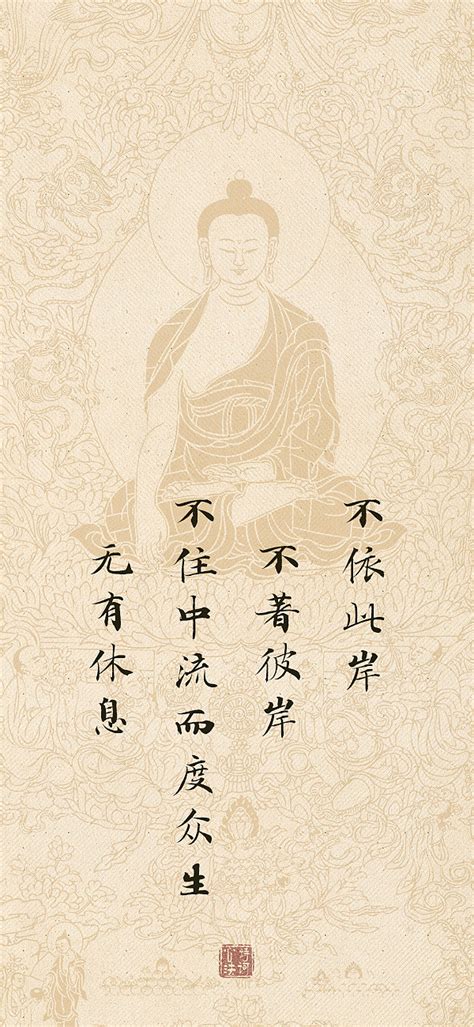 不依此岸
不著彼岸
不住中流而度众生
无有休息